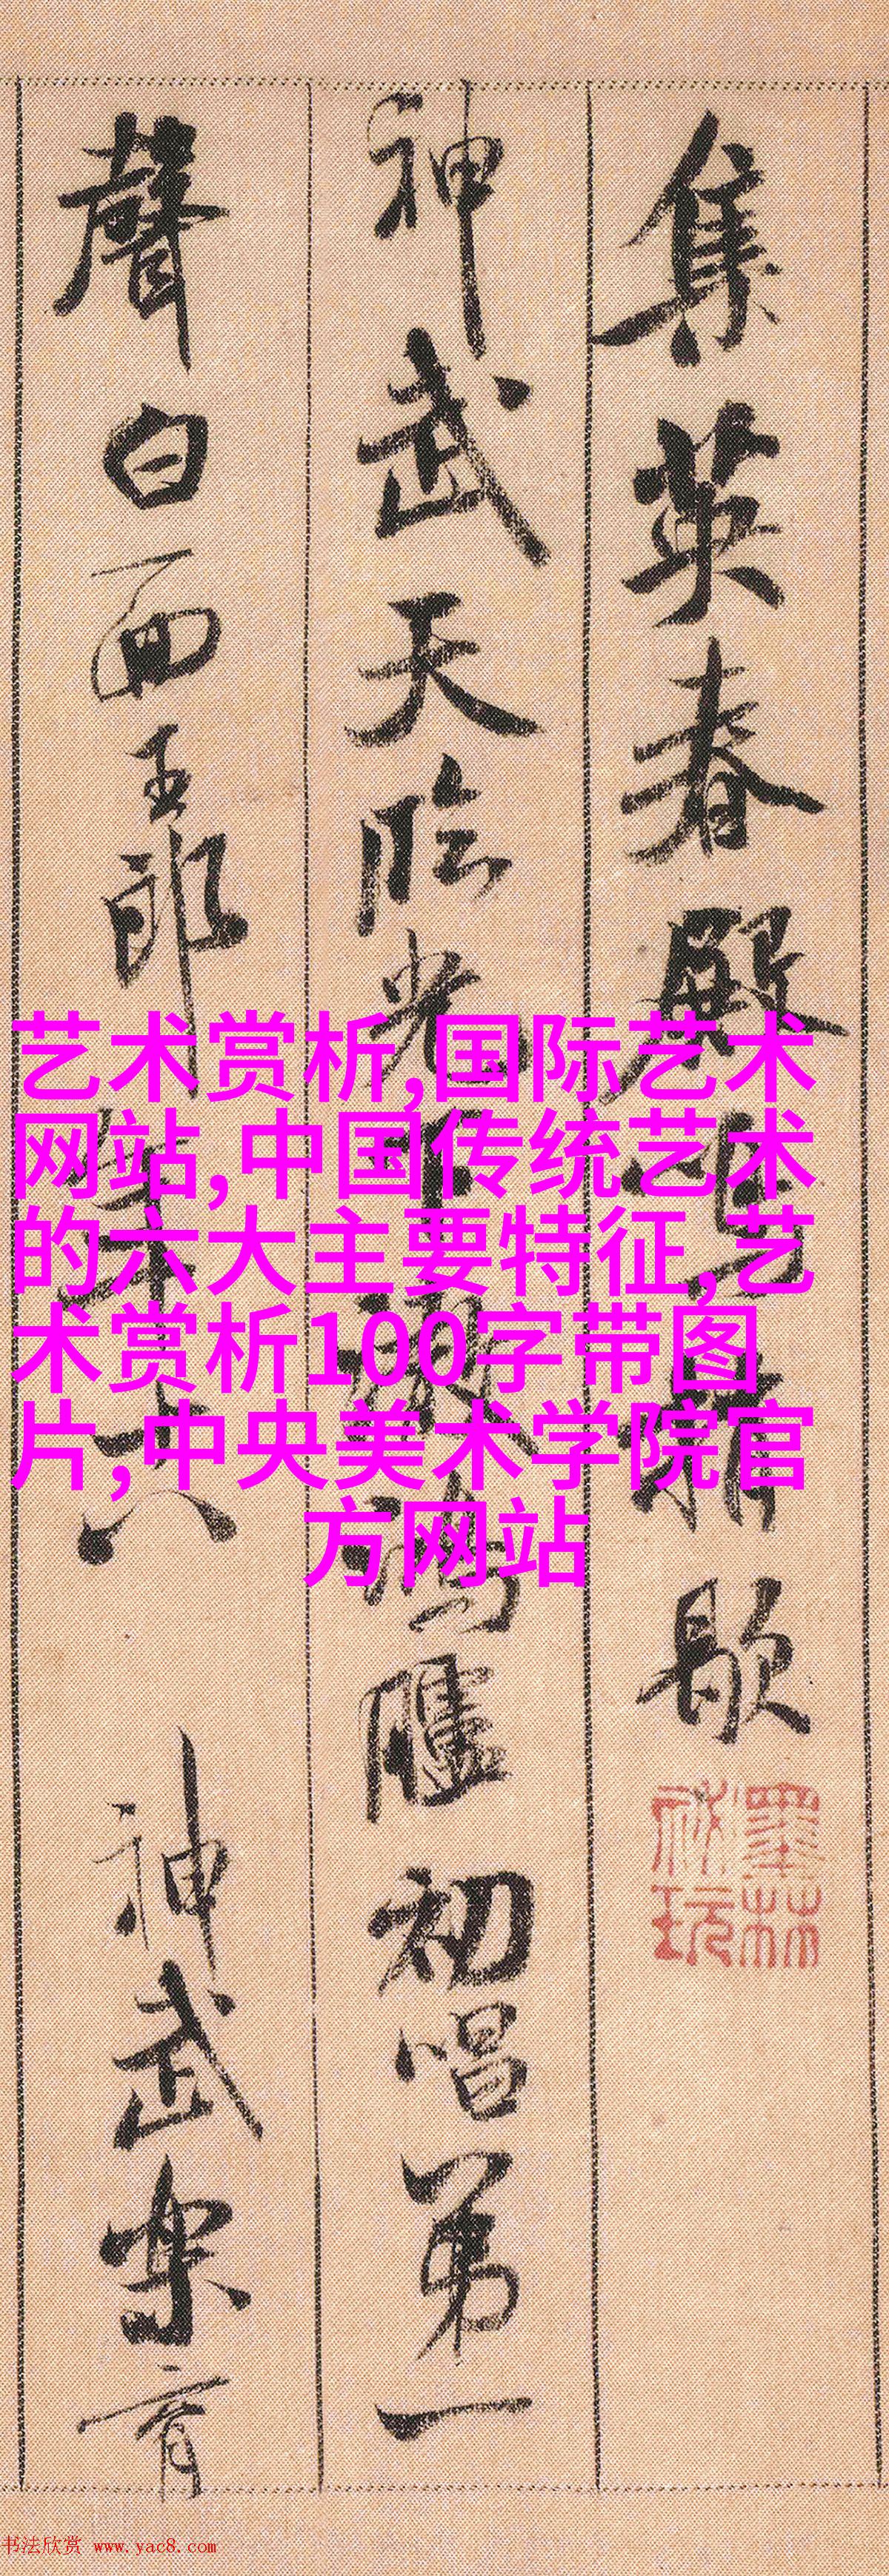 集英春殿鳴捎歇
神武天臨光下澈鴻臚初唱第一
聲白面王郎年十八 神武樂育
墨林祕玩
艺术赏析,国际艺术
网站,中国传统艺术
的六大主要特征,艺
术赏析100字带图
片,中央美术学院官
方网站
书法欣赏 www.yac8.com